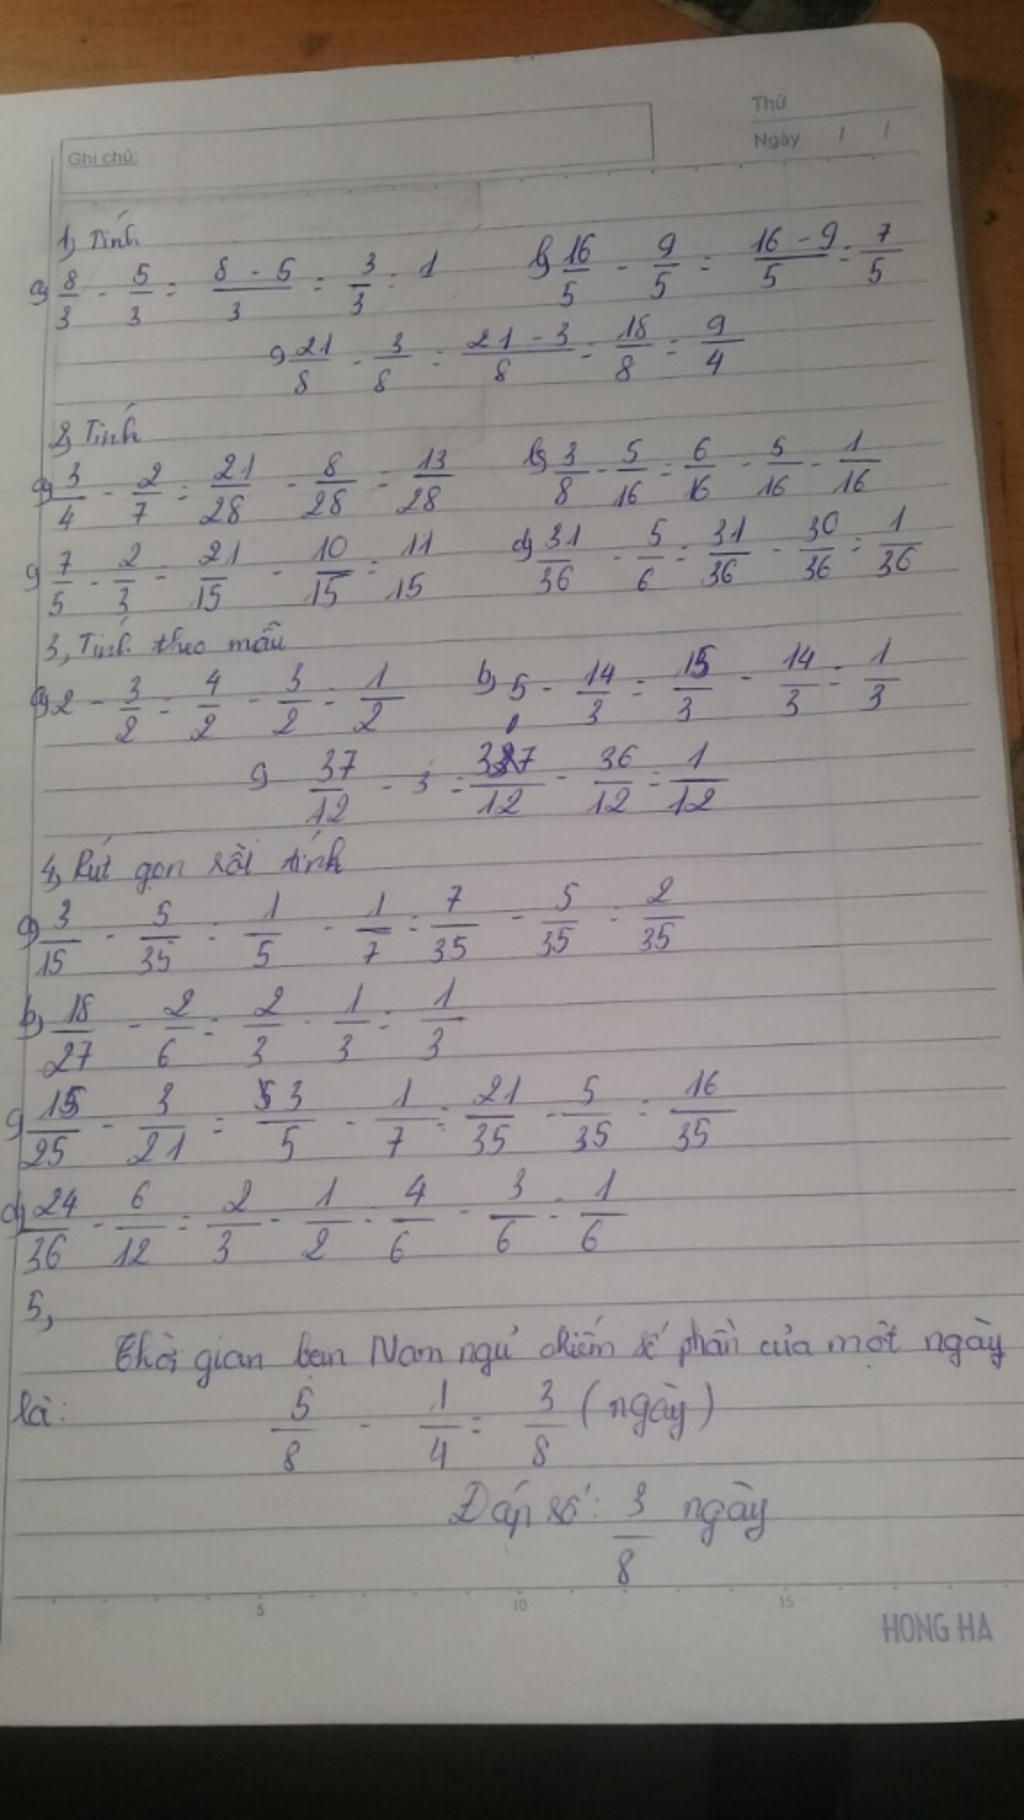 Thứ
Ghi chú:
Ngày / /
1, Tính
a, 8/3 - 5/3 = 8 - 5/3 = 3/3 = 1 b, 16/5 - 9/5 = 16 - 9/5 = 7/5
c, 21/8 - 3/8 = 21 - 3/8 = 18/8 = 9/4
2, Tính
a, 3/4 - 2/7 = 21/28 - 8/28 = 13/28 b, 3/8 - 5/16 = 6/16 - 5/16 = 1/16
c, 7/5 - 2/3 = 21/15 - 10/15 = 11/15 d, 31/36 - 5/6 = 31/36 - 30/36 = 1/36
3, Tính theo mẫu
a, 2 - 3/2 = 4/2 - 3/2 = 1/2 b, 5 - 14/3 = 15/3 - 14/3 = 1/3
c, 37/12 - 3 = 37/12 - 36/12 = 1/12
4, Rút gọn rồi tính
a, 3/15 - 5/35 = 1/5 - 1/7 = 7/35 - 5/35 = 2/35
b, 18/27 - 2/6 = 2/3 - 1/3 = 1/3
c, 15/25 - 3/21 = 3/5 - 1/7 = 21/35 - 5/35 = 16/35
d, 24/36 - 6/12 = 2/3 - 1/2 = 4/6 - 3/6 = 1/6
5,
Thời gian bạn Nam ngủ chiếm số phần của một ngày
là:
5/8 - 1/4 = 3/8 (ngày)
Đáp số: 3/8 ngày
5 10 15
HONG HA